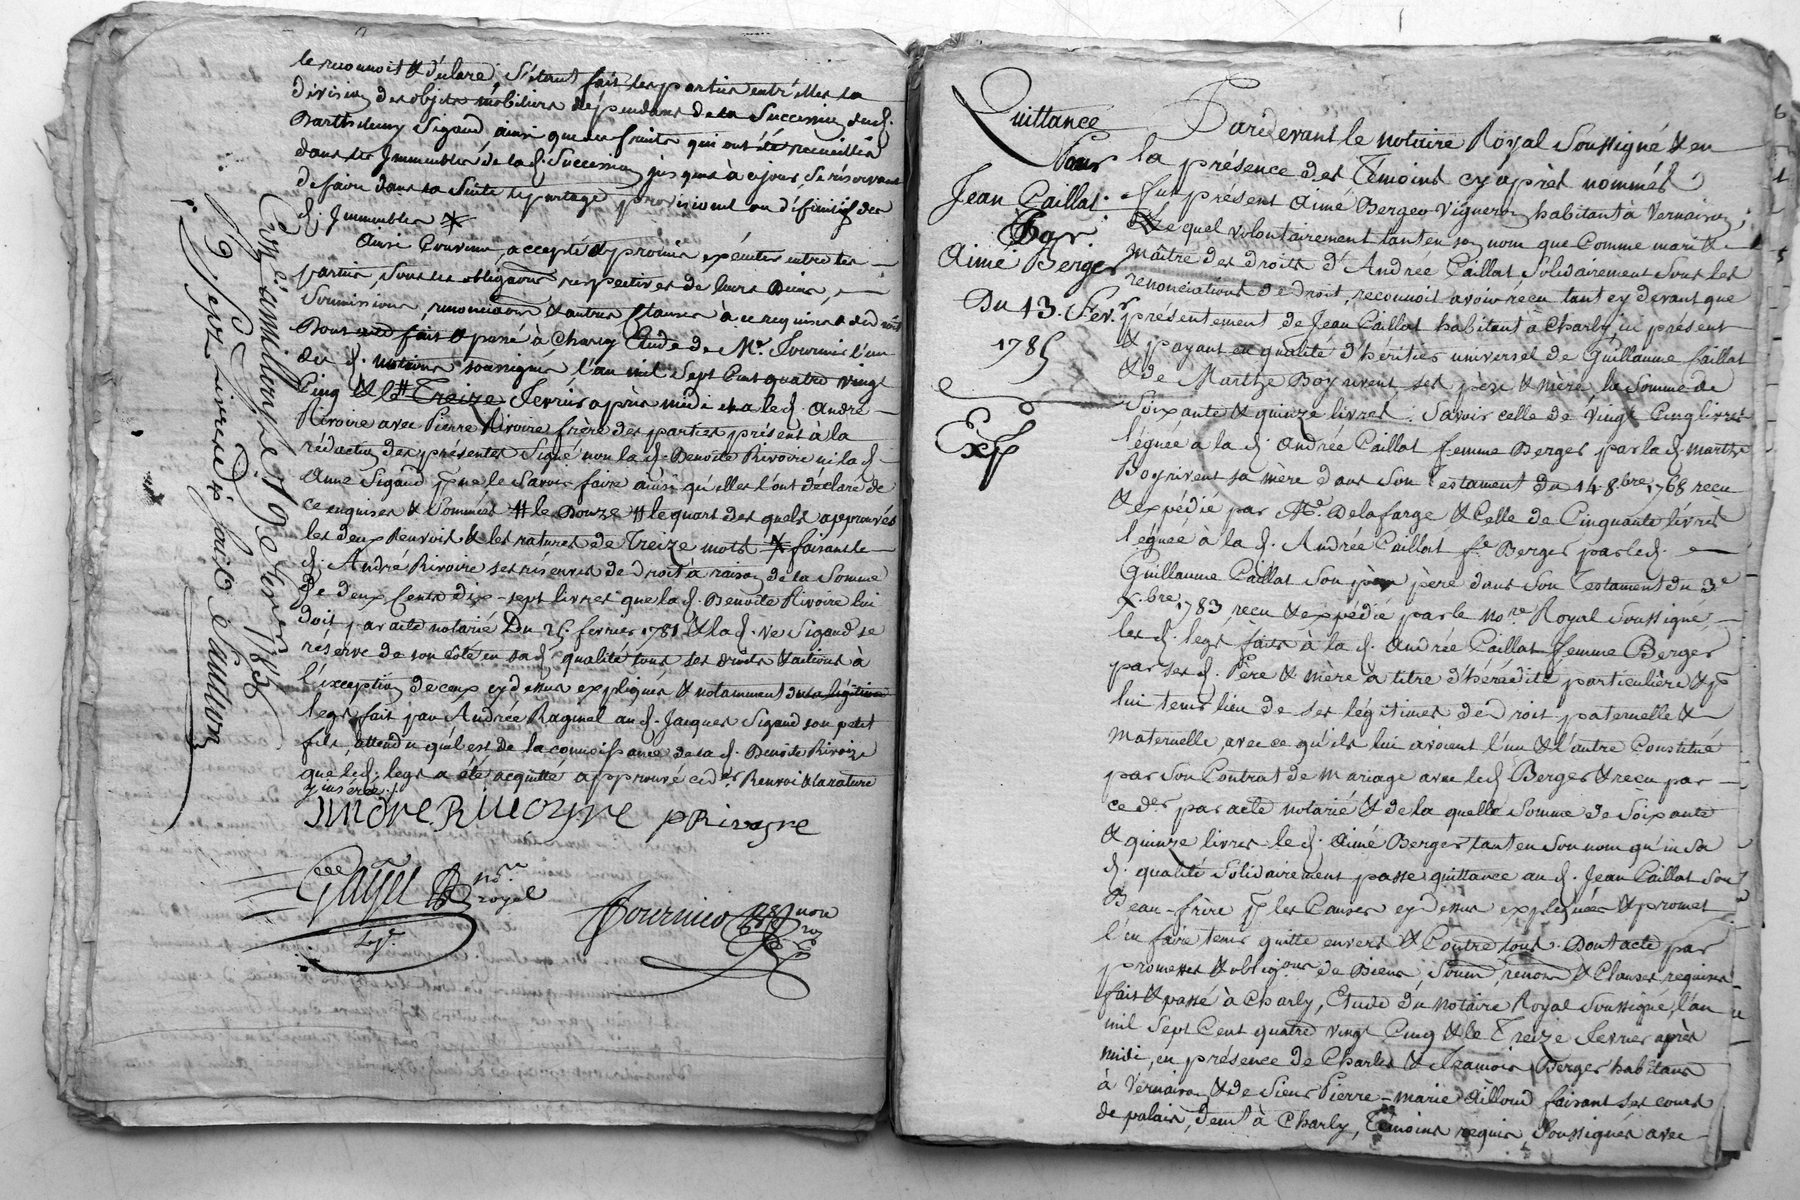 le reconnoit & déclaré, s'étant fait les parties entr'elles la
division des objets mobiliers dépendans de la Succession dud.
Barthelemy Sigaud, ainsi que des fruits qui ont été recueillis
dans les Immeubles de lad. Succession jusques à ce jour, se réservant
de faire dans la Suite le partage provisionnel ou définitif des
d. Immeubles
Ainsi Convenu, accepté & promis exécuter entre les
parties, sous les obligations respectives de leurs Biens,
Soumissions, renonciations & autres Clauses à ce requises
Dont acte fait & passé à Charly Etude de Me. Fournier l'un
des d. notaires soussignés, l'an mil Sept Cent quatre vingt
Cinq & le Treize Fevrier après midi & a led. André
Rivoire avec Pierre Rivoire frère des parties présent à la
rédaction des présentes Signé non la d. Benoîte Rivoire ni la d.
Anne Sigaud pr. ne le Savoir faire ainsi qu'elles l'ont déclaré de
ce enquises & Sommées # le Douze # le quart des quels approuvés
les deux Renvois & les ratures de Treize mots faisant le
d. André Rivoire ses réserves de droit à raison de la Somme
De deux Cents dix-sept livres que la d. Benoîte Rivoire lui
Doit par acte notarié Du 25. fevrier 1781 & la d. ve Sigaud se
réserve de son côté en sa d. qualité tous ses droits & actions à
l'exception de ceux cy dessus expliqués & notamment
legs fait par Andrée Raginel au d. Jacques Sigaud son petit
fils, attendu qu'il est de la connoissance de la d. Benoîte Rivoire
que led. legs a été acquitté approuvé ce der. Renvoi & la rature
y insérée.
André Rivoyre pRivoyre
Gayet nore royal
Fournier
19 fevrier 1785
Quittance
Pour
Jean Caillat.
Par
Aimé Berger
Du 13. Fevr.
1785
Exp
Pardevant le notaire Royal Soussigné & en
la présence des Témoins cy après nommés
Fut présent Aimé Berger Vigneron habitant à Vernaison,
Lequel volontairement tant en son nom que Comme mari &
maître des droits d'Andrée Caillat Solidairement Sous les
renonciations de Droit, reconnoit avoir réçu tant cy devant que
présentement de Jean Caillat habitant à Charly icy présent
& payant en qualité d'héritier universel de Guillaume Caillat
& de Marthe Boyrivent ses père & mère la Somme de
Soixante & quinze livres. Savoir celle de vingt Cinq livres
léguée à la d. Andrée Caillat femme Berger par la d. marthe
Boyrivent sa mère dans Son Testament du 14. 8.bre 1768 reçu
& expédié par Me. Delafarge & Celle de Cinquante livres
léguée à la d. Andrée Caillat fe. Berger par led.
Guillaume Caillat Son père dans Son Testament du 3e
x.bre 1783, reçu & expédié par le nore. Royal Soussigné,
les d. legs faits à la d. Andrée Caillat femme Berger
par ses d. Père & mère à titre d'hérédité particulière & pr
lui tenir lieu de ses légitimes de Droit paternelle &
maternelle, avec ce qu'ils lui avoient l'un & l'autre Constitué
par Son Contrat de mariage avec led. Berger & reçu par
ce der par acte notarié & de la quelle Somme de Soixante
& quinze livres led. Aimé Berger tant en Son nom qu'en sa
d. qualité Solidairement passe quittance au d. Jean Caillat Son
Beau-frère pr les Causes cy dessus expliquées & promet
l'en faire tenir quitte envers & Contre tous. Dont acte par
promesses & obligons de Biens, Soum., renon. & Clauses requises
fait & passé à Charly, Etude du notaire Royal Soussigné, l'an
mil Sept Cent quatre vingt Cinq & le Treize Fevrier après
midi, en présence de Charles & François Berger habitans
à Vernaison & de Sieur Pierre-marie Ailloud faisant ses cours
de palais, demt à Charly, Témoins requis Soussignés avec